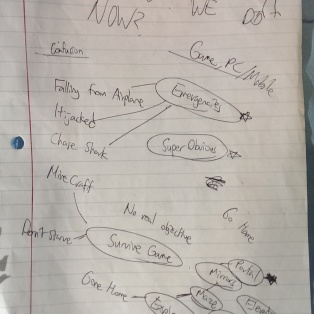 NOW? WE DO
Confusion
Game, PC/Mobile
Falling from Airplane
Emergencies
Hijacked
Chase Shark
Super Obvious
MineCraft
No real objective
Go Home
Don't Starve
Survive Game
Portal
Mirrors
Gone Home
Maze